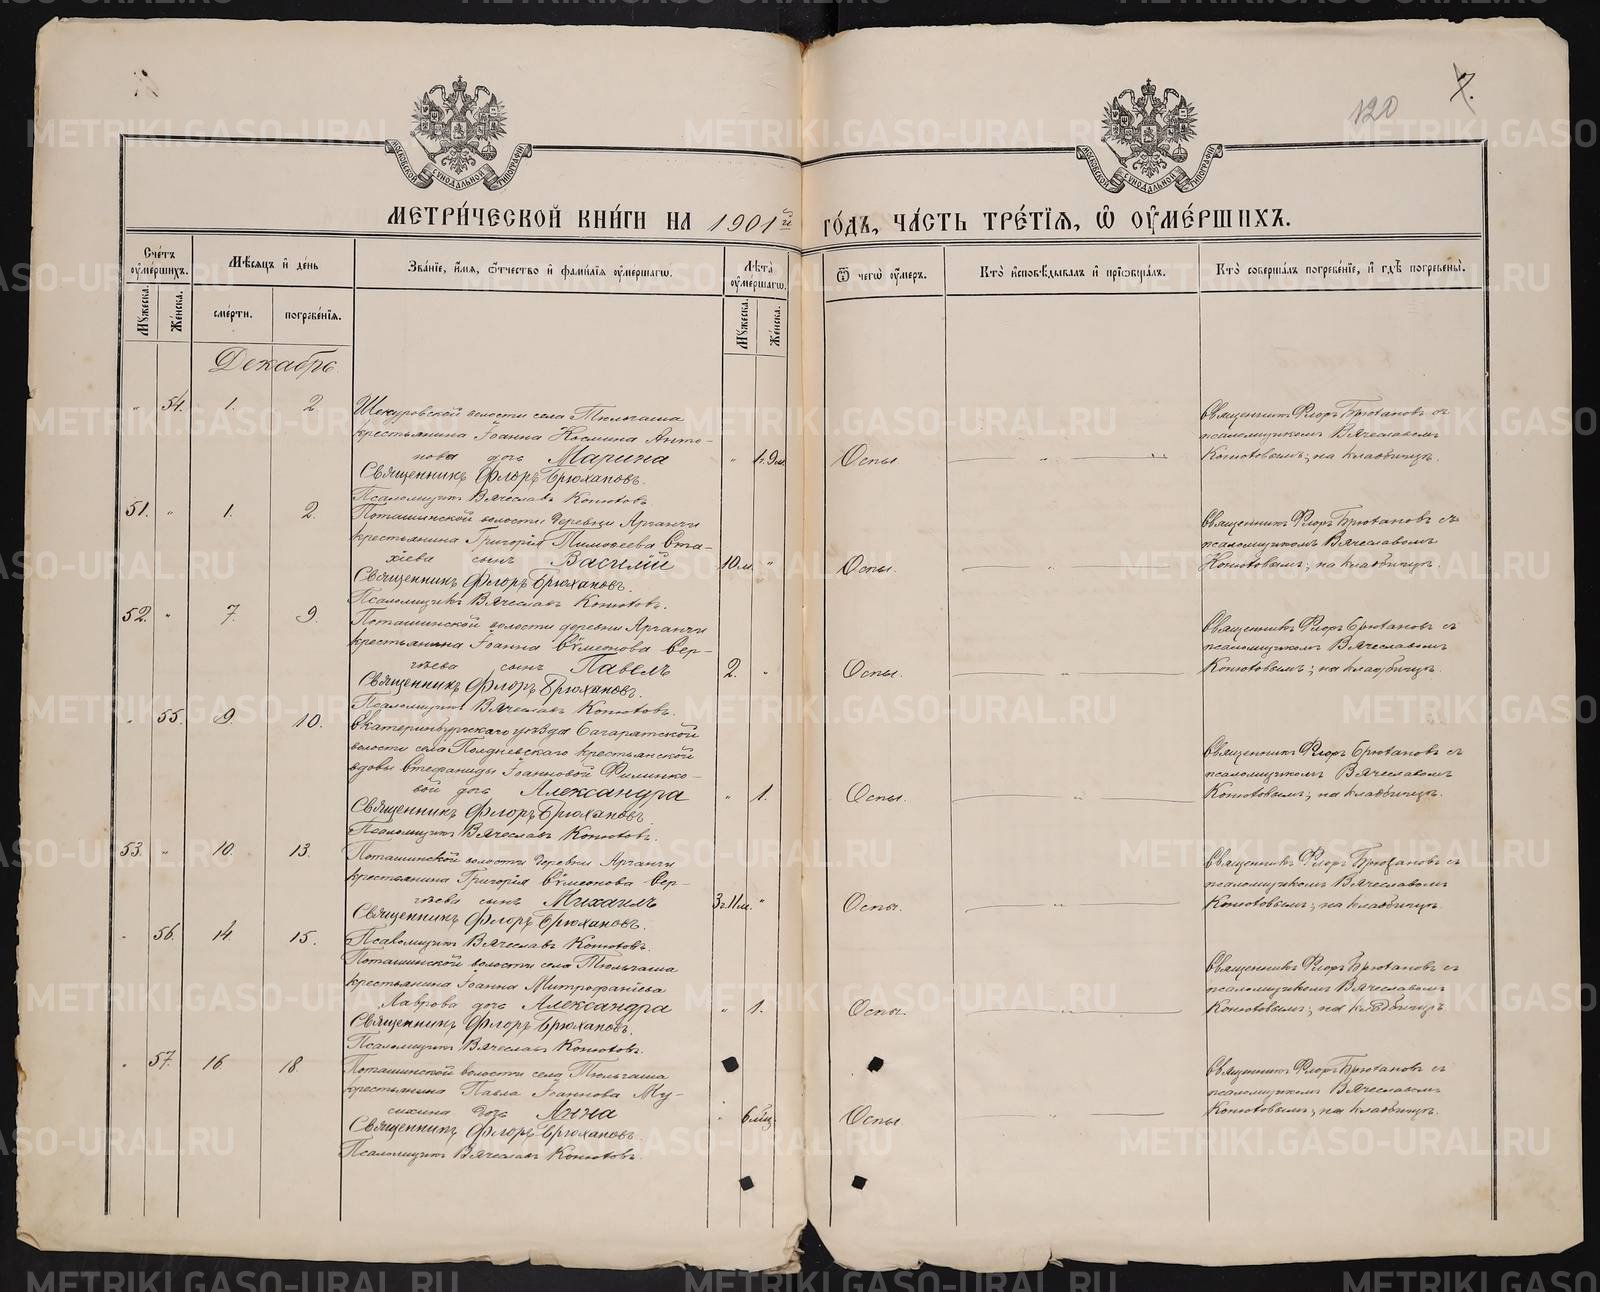 120
7.
МОСКОВСКОЙ СѴНОДАЛЬНОЙ ТИПОГРАФІИ
МОСКОВСКОЙ СѴНОДАЛЬНОЙ ТИПОГРАФІИ
МЕТРИ́ЧЕСКОЙ КНИ́ГИ НА 1901й ГО́ДЪ, ЧА́СТЬ ТРЕ́ТІЯ, Ѡ ОУМЕ́РШИХЪ.
Сче́тъ оуме́ршихъ.
Мꙋжеска.
Же́нска.
Мѣ́сяцъ и де́нь
сме́рти.
погребе́нія.
Зва́ніе, и́мя, ѻ́тчество и фами́лія оуме́ршагѡ.
Лѣ́та оуме́ршагѡ.
Мꙋжеска.
Же́нска.
Ѿ чегѡ̀ оу́меръ.
Кто̀ исповѣ́дывалъ и приѻбща́лъ.
Кто̀ соверша́лъ погребе́ніе, и гдѣ̀ погребены̀.
Декабрь.
" 54. 1. 2.
волости села Тюльгаша
крестьянина Іоанна Космина Анто-
нова дочь Марина " 1г.9м. Оспы
Священникъ Флоръ Брюхановъ.
Псаломщикъ Вячеславъ Конютовъ
Священникъ Флоръ Брюхановъ съ
псаломщикомъ Вячеславомъ
Конютовымъ; на кладбищѣ.
51. " 1. 2.
Поташинской волости деревни Арганчи
крестьянина Григорія Тимоѳеева Ста-
хіева сынъ Василій 10.м. " Оспы.
Священникъ Флоръ Брюхановъ.
Псаломщикъ Вячеславъ Конютовъ.
Священникъ Флоръ Брюхановъ съ
псаломщикомъ Вячеславомъ
Конютовымъ; на кладбищѣ.
52. " 7. 9.
Поташинской волости деревни Арганчи
крестьянина Іоанна Сѵмеонова Сер-
гѣева сынъ Павелъ 2. " Оспы.
Священникъ Флоръ Брюхановъ.
Псаломщикъ Вячеславъ Конютовъ.
Священникъ Флоръ Брюхановъ съ
псаломщикомъ Вячеславомъ
Конютовымъ; на кладбищѣ.
" 55. 9. 10.
Екатеринбургскаго уѣзда
волости села Полдневскаго крестьянской
вдовы Стефаниды Іоанновой Филинко-
вой дочь Александра " 1. Оспы.
Священникъ Флоръ Брюхановъ.
Псаломщикъ Вячеславъ Конютовъ.
Священникъ Флоръ Брюхановъ съ
псаломщикомъ Вячеславомъ
Конютовымъ; на кладбищѣ.
53. " 10. 13.
Поташинской волости деревни Арганчи
крестьянина Григорія Сѵмеонова Сер-
гѣева сынъ Михаилъ 3г.11м. " Оспы.
Священникъ Флоръ Брюхановъ.
Псаломщикъ Вячеславъ Конютовъ.
Священникъ Флоръ Брюхановъ съ
псаломщикомъ Вячеславомъ
Конютовымъ; на кладбищѣ.
" 56. 14. 15.
Поташинской волости села Тюльгаша
крестьянина Іоанна Митрофаніева
Лаврова дочь Александра " 1. Оспы.
Священникъ Флоръ Брюхановъ.
Псаломщикъ Вячеславъ Конютовъ.
Священникъ Флоръ Брюхановъ съ
псаломщикомъ Вячеславомъ
Конютовымъ; на кладбищѣ.
" 57. 16. 18.
Поташинской волости села Тюльгаша
крестьянина Павла Іоаннова Му-
сихина дочь Анна " 6мѣц. Оспы.
Священникъ Флоръ Брюхановъ.
Псаломщикъ Вячеславъ Конютовъ.
Священникъ Флоръ Брюхановъ съ
псаломщикомъ Вячеславомъ
Конютовымъ; на кладбищѣ.
METRIKI.GASO-URAL.RU